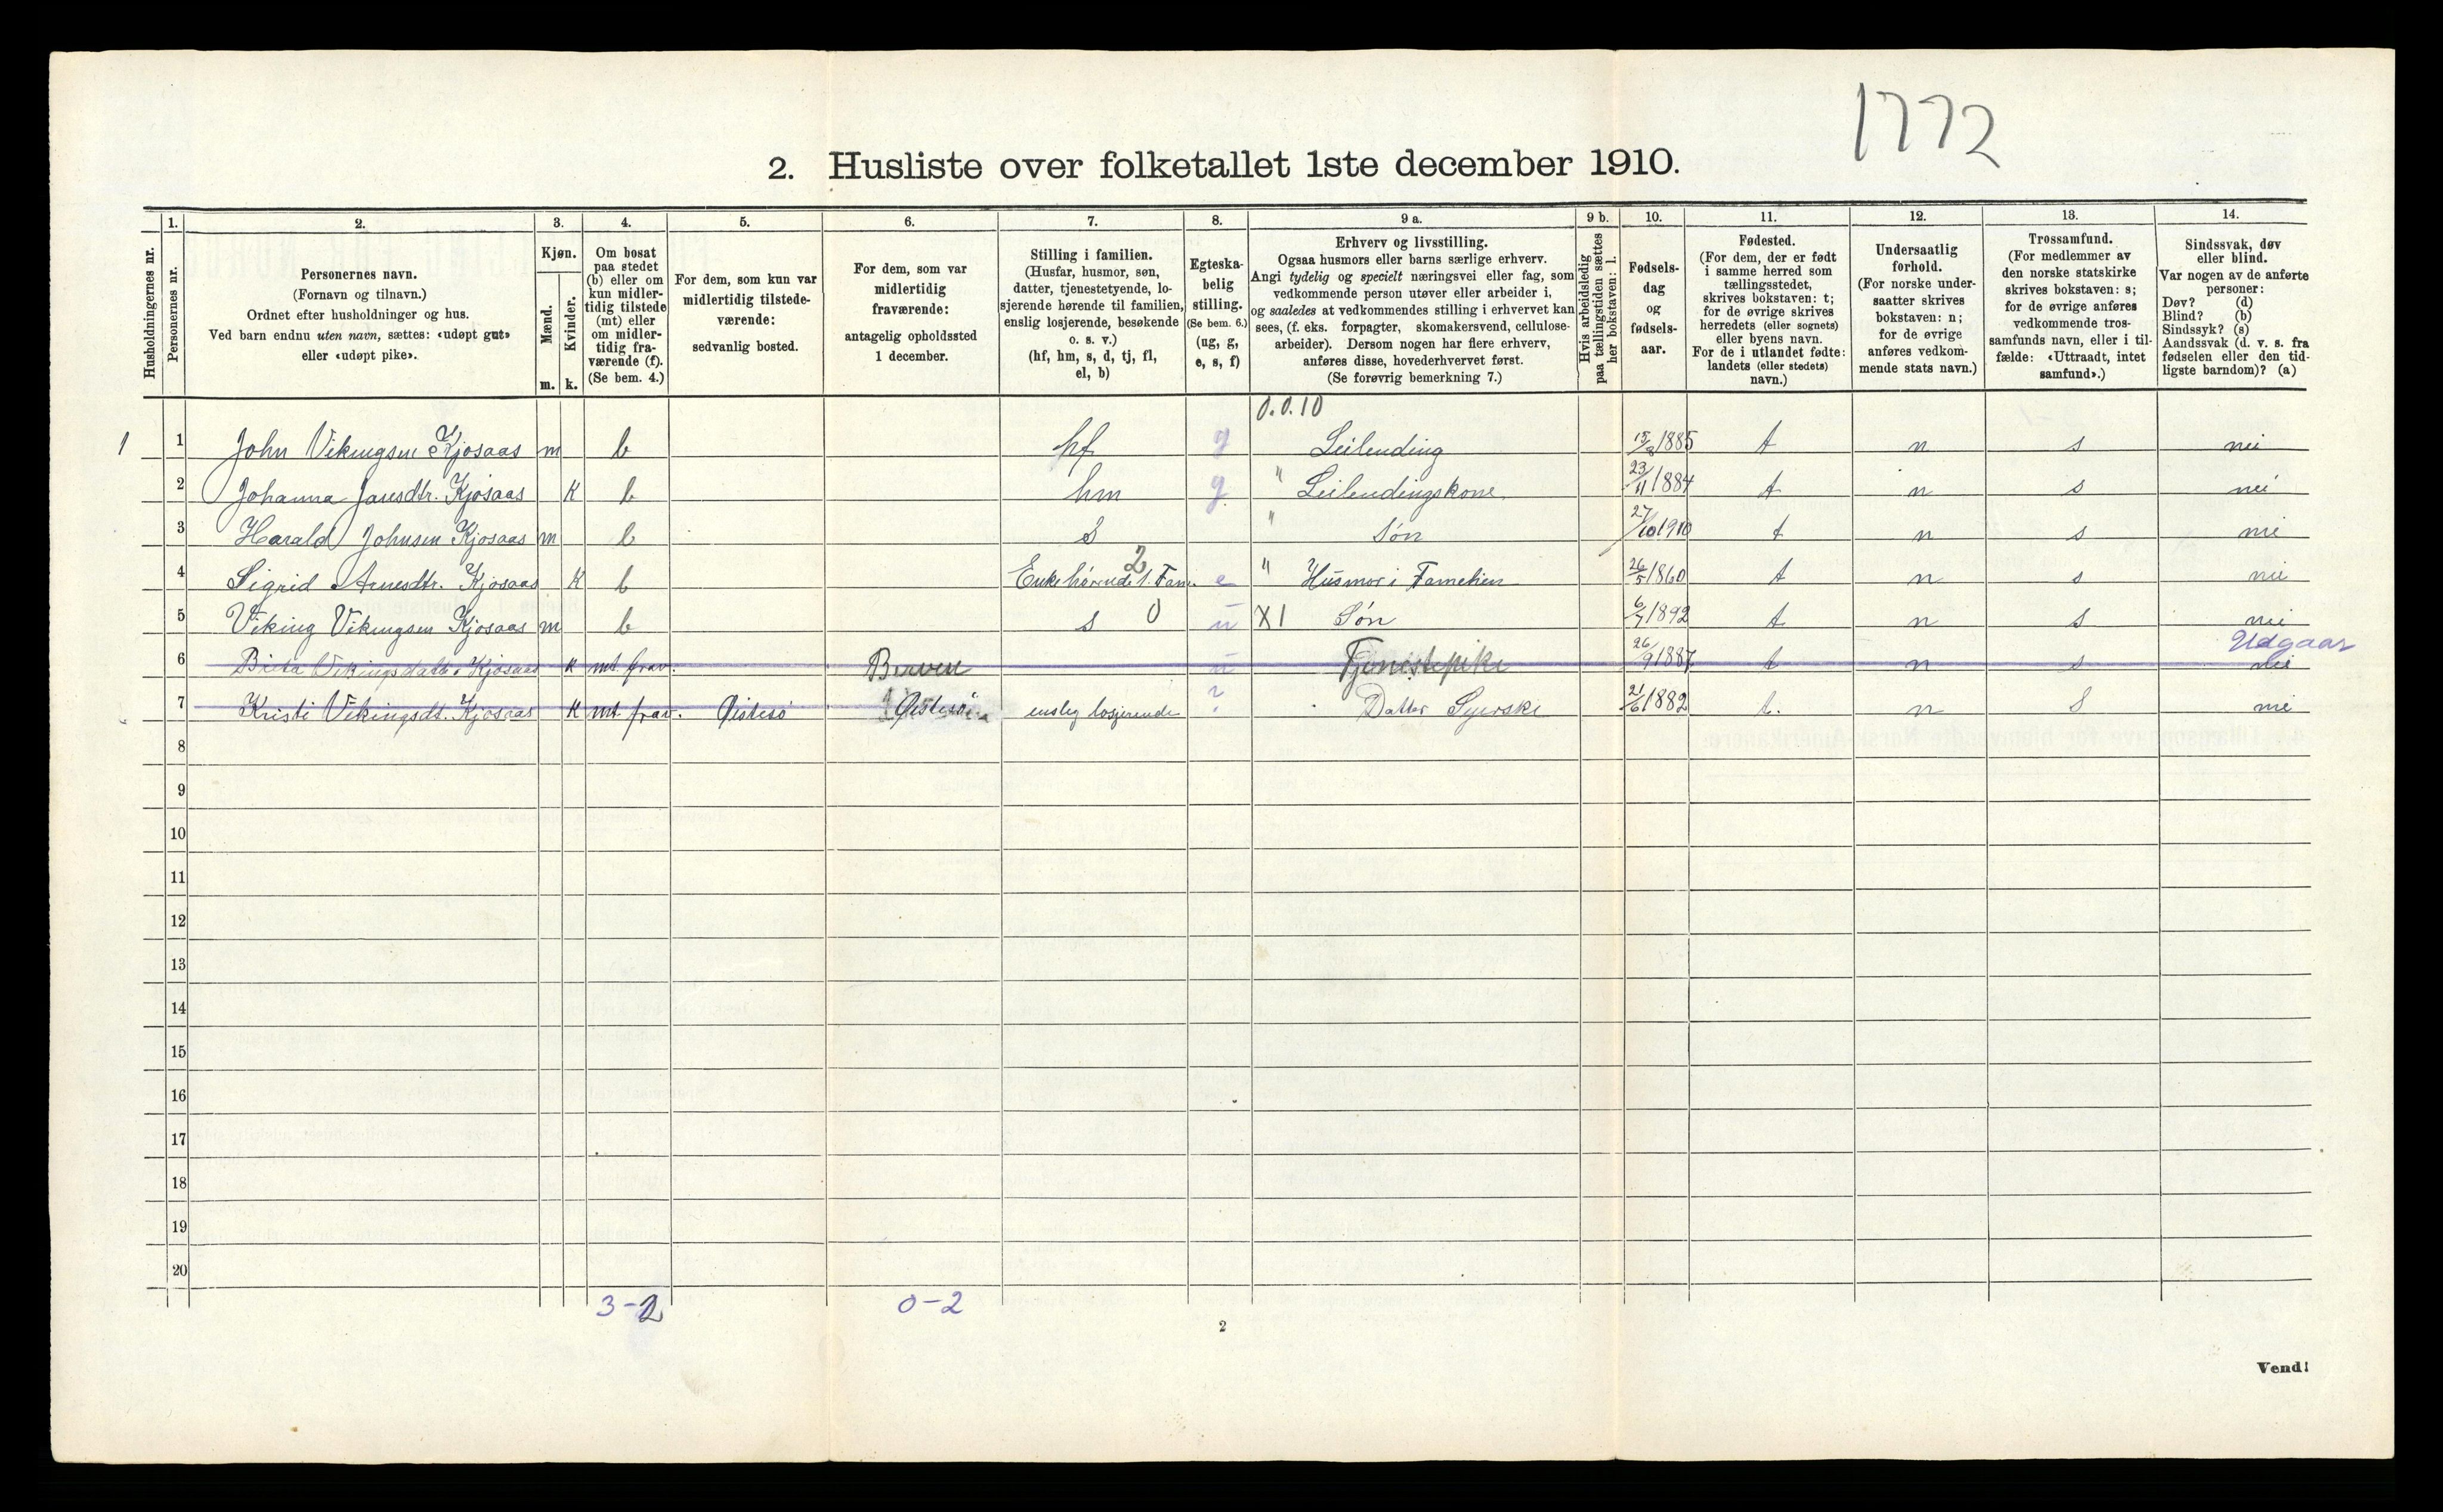 1772
2. Husliste over folketallet 1ste december 1910.
Husholdningernes nr.
1.
Personernes nr.
2.
Personernes navn.
(Fornavn og tilnavn.)
Ordnet efter husholdninger og hus.
Ved barn endnu uten navn, sættes: «udøpt gut»
eller «udøpt pike».
3.
Kjøn.
Mænd.
Kvinder.
m. k.
4.
Om bosat
paa stedet
(b) eller om
kun midler-
tidig tilstede
(mt) eller
om midler-
tidig fra-
værende (f).
(Se bem. 4.)
5.
For dem, som kun var
midlertidig tilstede-
værende:
sedvanlig bosted.
6.
For dem, som var
midlertidig
fraværende:
antagelig opholdssted
1 december.
7.
Stilling i familien.
(Husfar, husmor, søn,
datter, tjenestetyende, lo-
sjerende hørende til familien,
enslig losjerende, besøkende
o. s. v.)
(hf, hm, s, d, tj, fl,
el, b)
8.
Egteska-
belig
stilling.
(Se bem. 6.)
(ug, g,
e, s, f)
9 a.
Erhverv og livsstilling.
Ogsaa husmors eller barns særlige erhverv.
Angi tydelig og specielt næringsvei eller fag, som
vedkommende person utøver eller arbeider i,
og saaledes at vedkommendes stilling i erhvervet kan
sees, (f. eks. forpagter, skomakersvend, cellulose-
arbeider). Dersom nogen har flere erhverv,
anføres disse, hovederhvervet først.
(Se forøvrig bemerkning 7.)
9 b.
Hvis arbeidsledig
paa tællingstiden sættes
her bokstaven: l.
10.
Fødsels-
dag
og
fødsels-
aar.
11.
Fødested.
(For dem, der er født
i samme herred som
tællingsstedet,
skrives bokstaven: t;
for de øvrige skrives
herredets (eller sognets)
eller byens navn.
For de i utlandet fødte:
landets (eller stedets)
navn.)
12.
Undersaatlig
forhold.
(For norske under-
saatter skrives
bokstaven: n;
for de øvrige
anføres vedkom-
mende stats navn.)
13.
Trossamfund.
(For medlemmer av
den norske statskirke
skrives bokstaven: s;
for de øvrige anføres
vedkommende tros-
samfunds navn, eller i til-
fælde: «Uttraadt, intet
samfund».)
14.
Sindssvak, døv
eller blind.
Var nogen av de anførte
personer:
Døv? (d)
Blind? (b)
Sindssyk? (s)
Aandssvak (d. v. s. fra
fødselen eller den tid-
ligste barndom)? (a)
0.0.10
1 1 John Vikingsen Kjosaas m b hf g Leilending 15/8 1885 t n s nei
2 Johanna Janesdtr. Kjosaas K b hm g " Leilendingskone 23/11 1884 t n s nei
3 Harald Johnsen Kjosaas m b s " Søn 27/10 1910 t n s nei
2
4 Sigrid Arnesdtr. Kjosaas K b Enke hørende t. Fam. e " Husmor i Famelien 26/5 1860 t n s nei
5 Viking Vikingsen Kjosaas m b s 0 u X1 Søn 6/7 1892 t n s nei
Udgaar
6 Brita Vikingsdatter Kjosaas K mt. frav. Berven u Tjenestepike 26/9 1887 t n s nei
7 Kristi Vikingsdt. Kjosaas K mt. frav. Øistesø Øistesø enslig losjerende ? Datter Syerske 21/6 1882 t. n S nei
8
9
10
11
12
13
14
15
16
17
18
19
20
3-2 0-2
2
Vend!